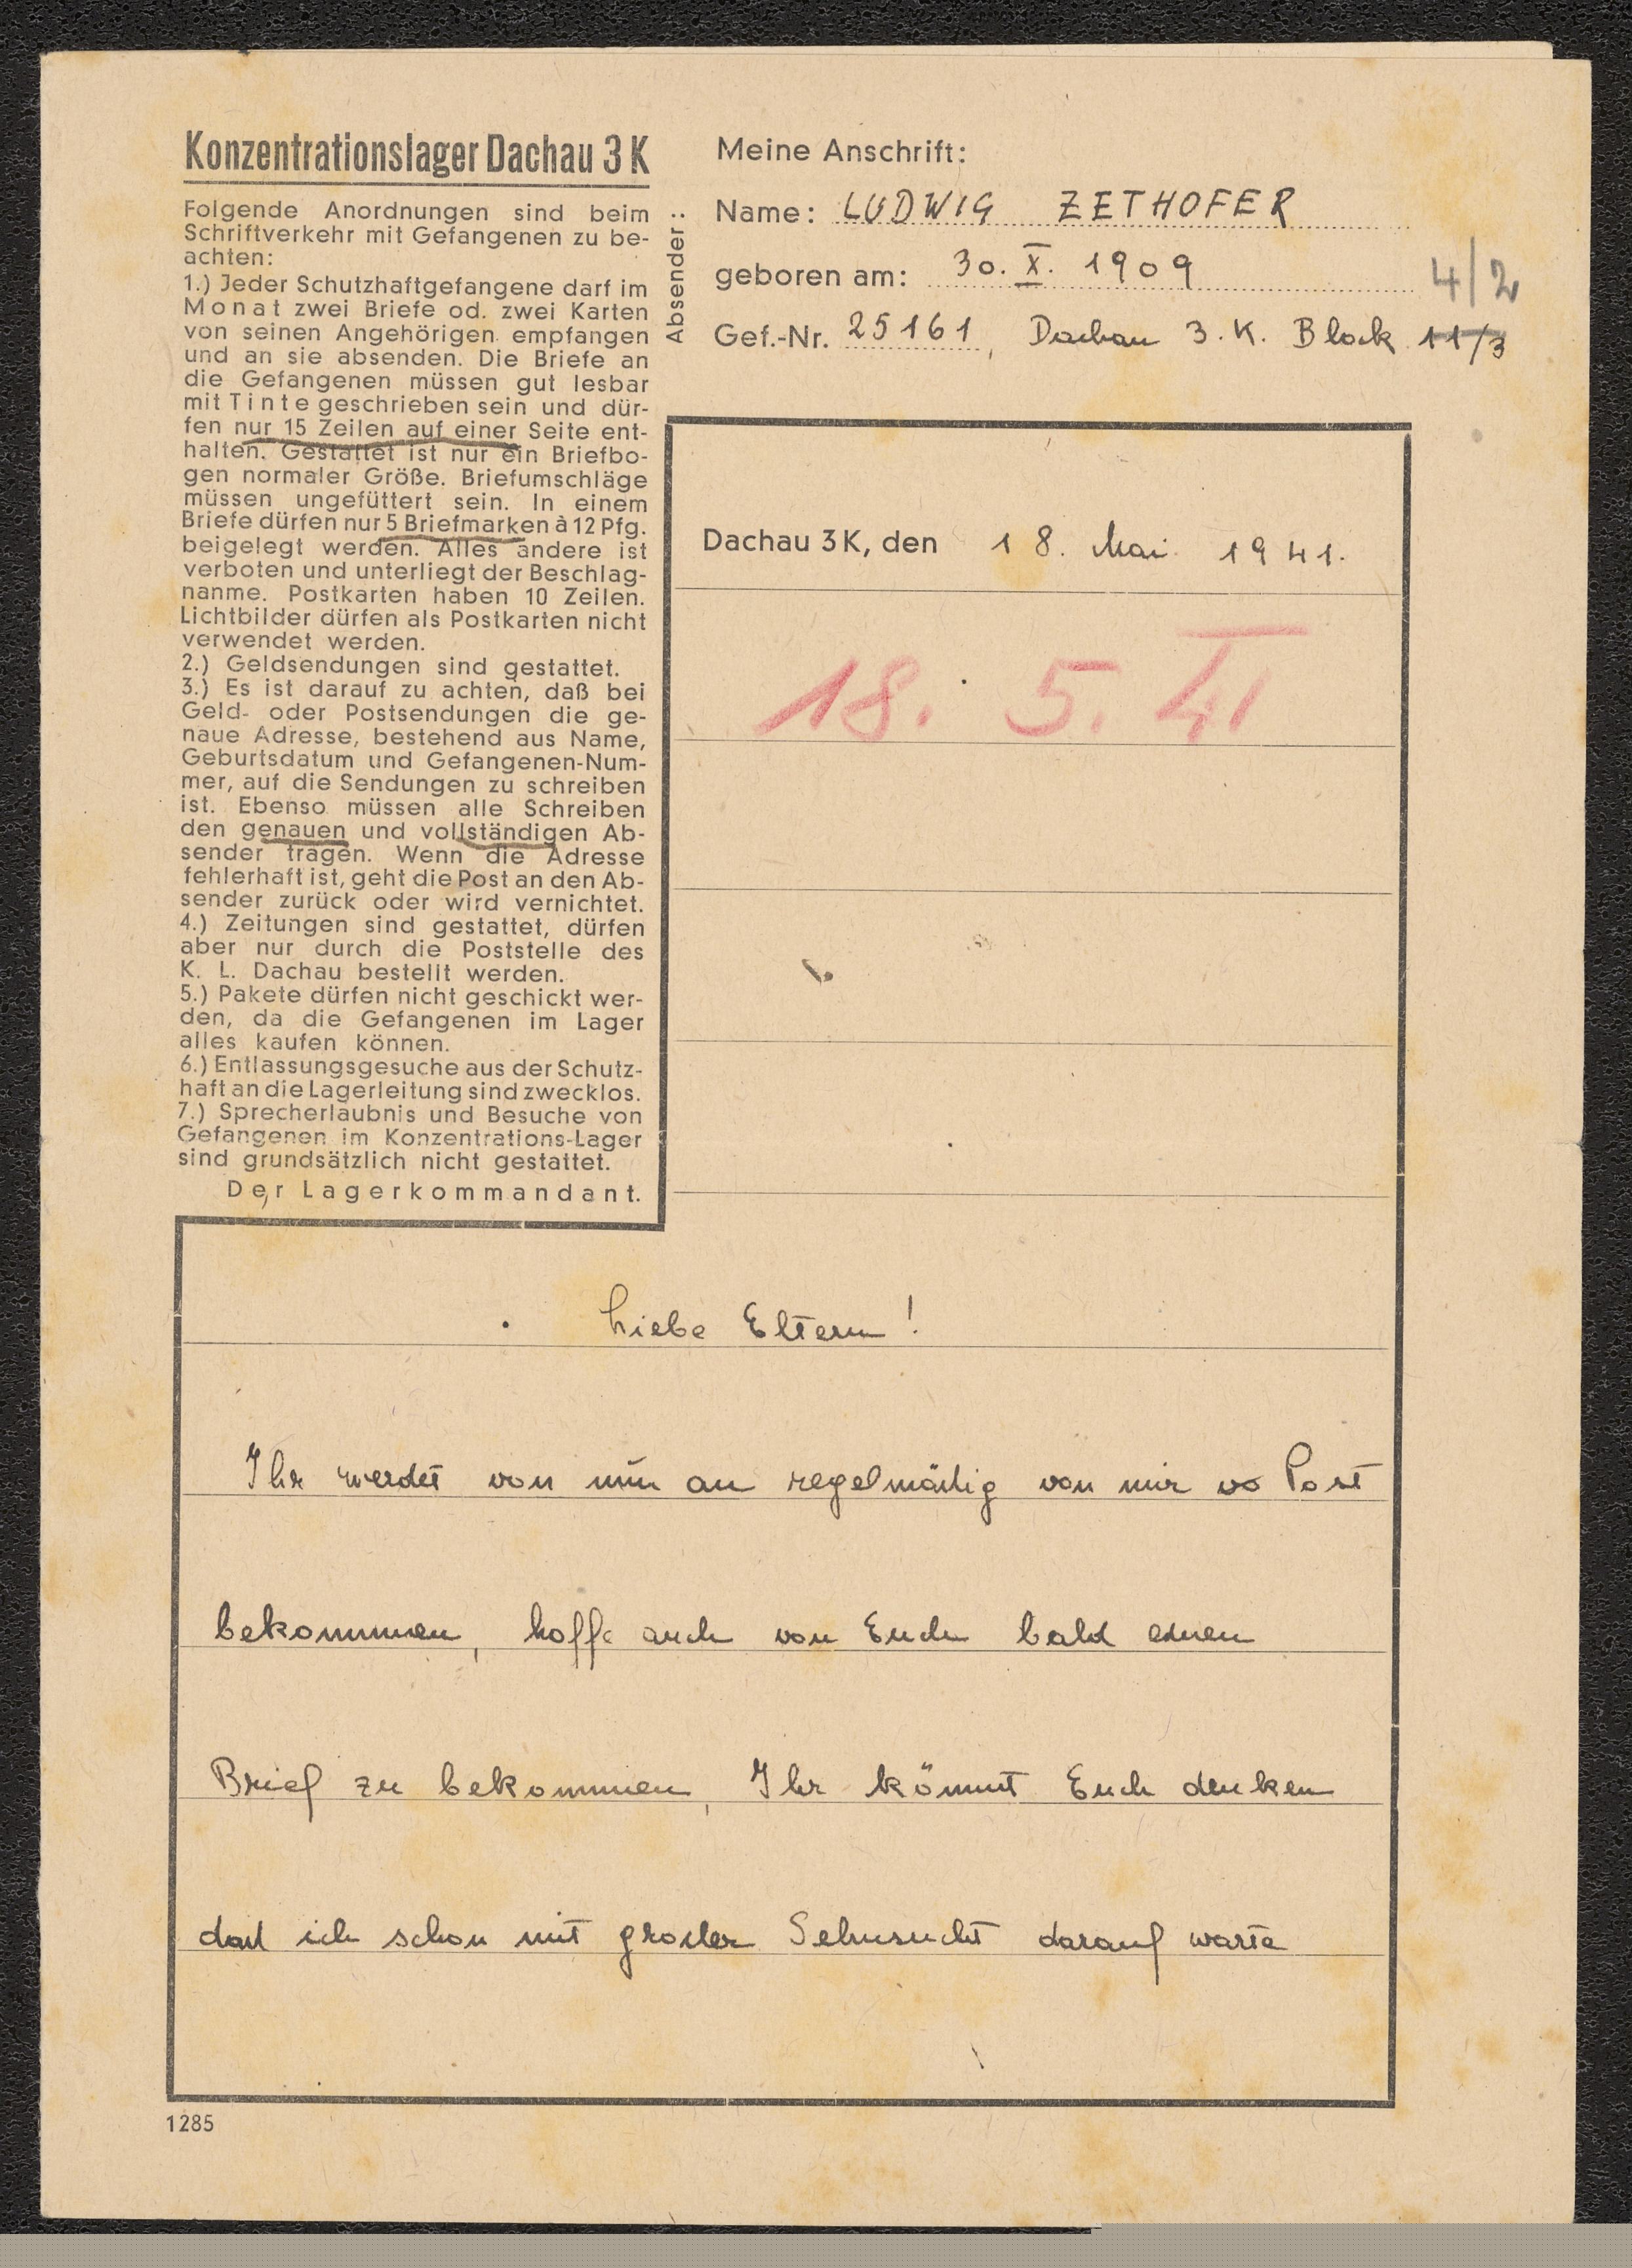 Konzentrationslager Dachau 3 K
Folgende Anordnungen sind beim
Schriftverkehr mit Gefangenen zu be-
achten:
1.) Jeder Schutzhaftgefangene darf im
Monat zwei Briefe od. zwei Karten
von seinen Angehörigen empfangen
und an sie absenden. Die Briefe an
die Gefangenen müssen gut lesbar
mit Tinte geschrieben sein und dür-
fen nur 15 Zeilen auf einer Seite ent-
halten. Gestattet ist nur ein Briefbo-
gen normaler Größe. Briefumschläge
müssen ungefüttert sein. In einem
Briefe dürfen nur 5 Briefmarken à 12 Pfg.
beigelegt werden. Alles andere ist
verboten und unterliegt der Beschlag-
nanme. Postkarten haben 10 Zeilen.
Lichtbilder dürfen als Postkarten nicht
verwendet werden.
2.) Geldsendungen sind gestattet.
3.) Es ist darauf zu achten, daß bei
Geld- oder Postsendungen die ge-
naue Adresse, bestehend aus Name,
Geburtsdatum und Gefangenen-Num-
mer, auf die Sendungen zu schreiben
ist. Ebenso müssen alle Schreiben
den genauen und vollständigen Ab-
sender tragen. Wenn die Adresse
fehlerhaft ist, geht die Post an den Ab-
sender zurück oder wird vernichtet.
4.) Zeitungen sind gestattet, dürfen
aber nur durch die Poststelle des
K. L. Dachau bestellt werden.
5.) Pakete dürfen nicht geschickt wer-
den, da die Gefangenen im Lager
alles kaufen können.
6.) Entlassungsgesuche aus der Schutz-
haft an die Lagerleitung sind zwecklos.
7.) Sprecherlaubnis und Besuche von
Gefangenen im Konzentrations-Lager
sind grundsätzlich nicht gestattet.
Der Lagerkommandant.
Absender:
Meine Anschrift:
Name: LUDWIG ZETHOFER
geboren am: 30. X. 1909
4/2
Gef.-Nr. 25161, Dachau 3. K. Block 11/3
Dachau 3 K, den 18. Mai 1941.
18. 5. 41
Liebe Eltern!
Ihr werdet von nun an regelmäßig von mir Post
bekommen, hoffe auch von Euch bald einen
Brief zu bekommen, Ihr könnt Euch denken
daß ich schon mit großer Sehnsucht darauf warte
1285